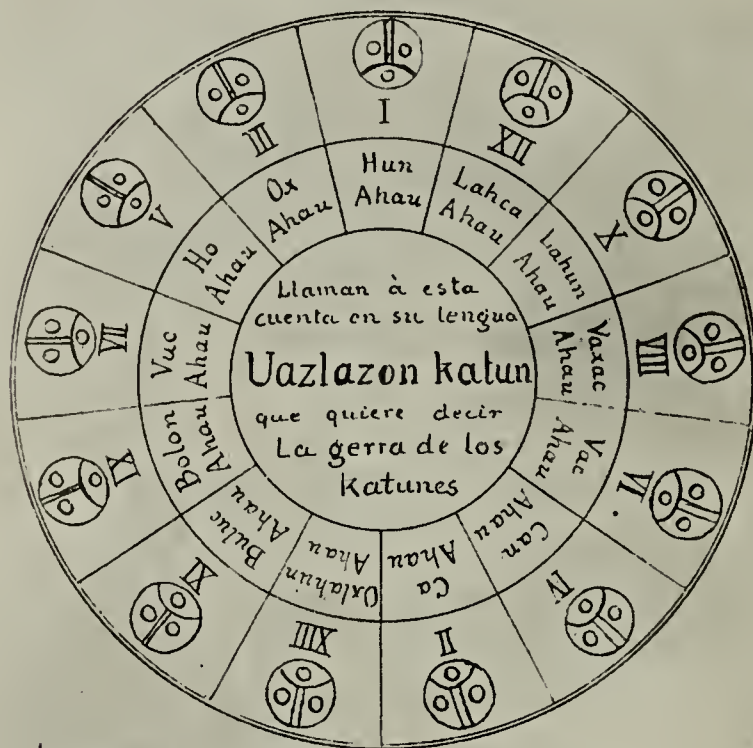 I
XII
X
VIII
VI
IV
II
XIII
XI
IX
VII
V
III
Hun
Ahau
Lahca
Ahau
Lahun
Ahau
Vaxac
Ahau
Vac
Ahau
Can
Ahau
Ca
Ahau
Oxlahun
Ahau
Buluc
Ahau
Bolon
Ahau
Vuc
Ahau
Ho
Ahau
Ox
Ahau
Llaman à esta
cuenta en su lengua
Uazlazon katun
que quiere decir
La gerra de los
katunes